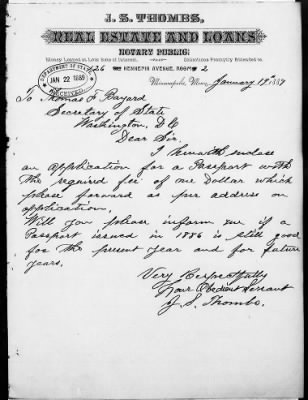 J. S. THOMBS,
REAL ESTATE AND LOANS
NOTARY PUBLIC.
Money Loaned at Low Rates of Interest. Collections Promptly Attended to.
126 HENNEPIN AVENUE, ROOM 2
DEPARTMENT OF STATE
JAN 22 1889
RECEIVED
Minneapolis, Minn., January 19th 1889
To Thomas F Bayard
Secretary of State
Washington, D.C
Dear Sir.
I herewith inclose
an application for a Passport with
the required fee of one Dollar which
please forward as per address on
application.
Will you please inform me if a
Passport issued in 1886 is still good
for the present year and for future
years.
Very Respectfully
Your Obedient Servant
J. S. Thombs.